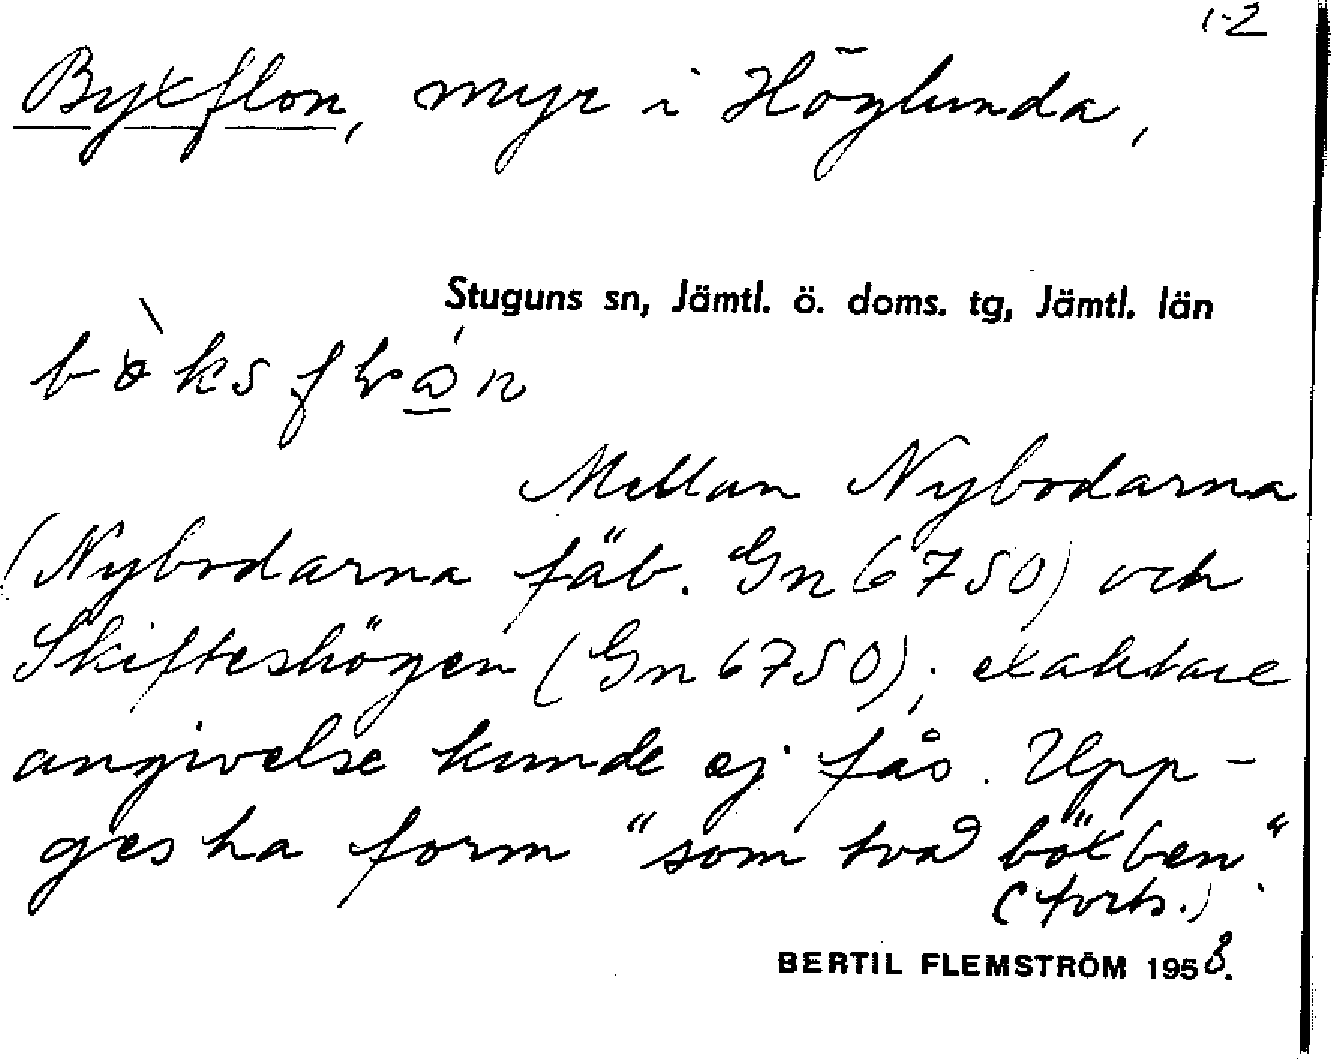 1-2
Byxflon, myr i Höglunda,
Stuguns sn, Jämtl. ö. doms. tg, Jämtl. län
Mellan Nybodarna
(Nybodarna fäb. Gn 6750) och
Skifteshögen (Gn 6750); exaktare
angivelse kunde ej fås. Upp-
ges ha form "som två böxben"
(forts.)
BERTIL FLEMSTRÖM 1958.